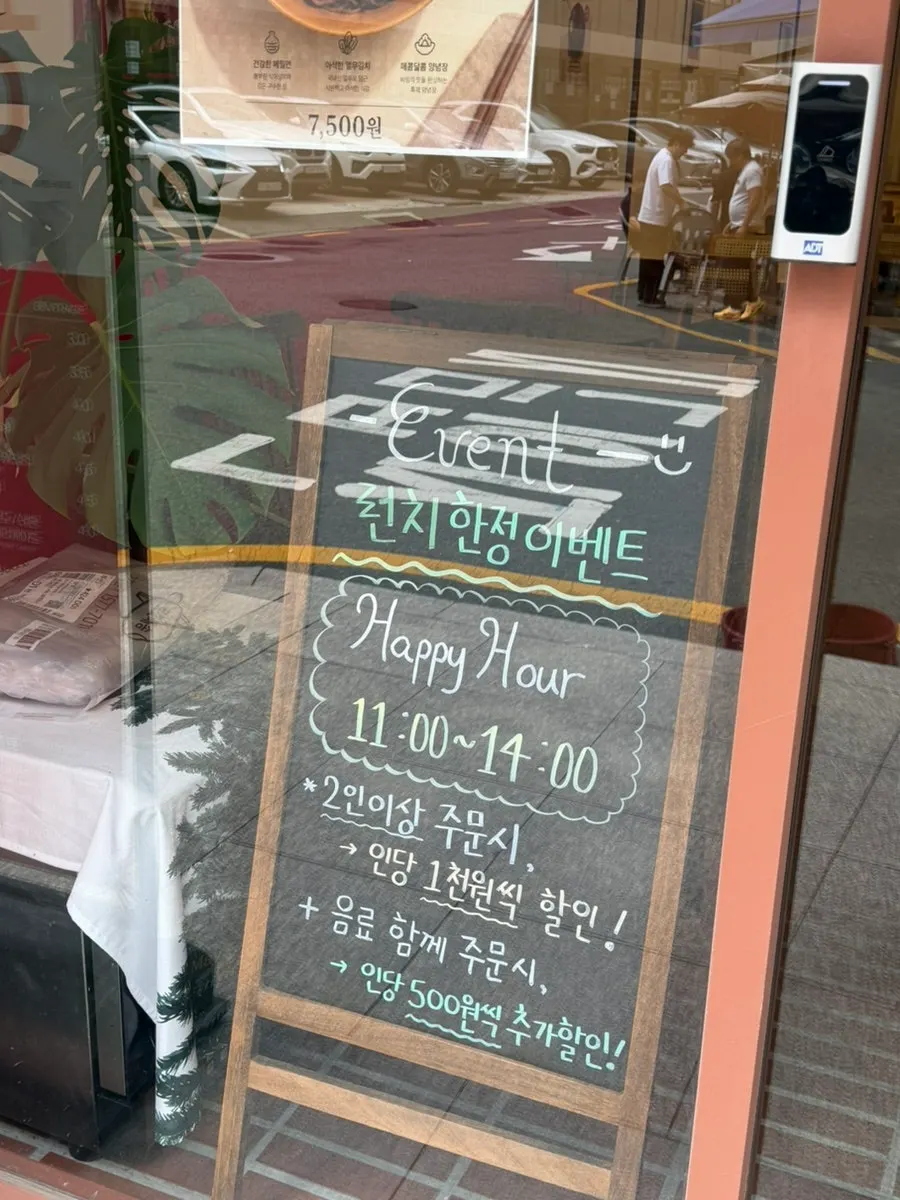 건강한 메밀면
아삭한 열무김치
매콤달콤 양념장
7,500원
ADT
- Event -
런치 한정 이벤트
Happy Hour
11:00~14:00
*2인이상 주문시,
→ 인당 1천원씩 할인!
+ 음료 함께 주문시,
→ 인당 500원씩 추가할인!